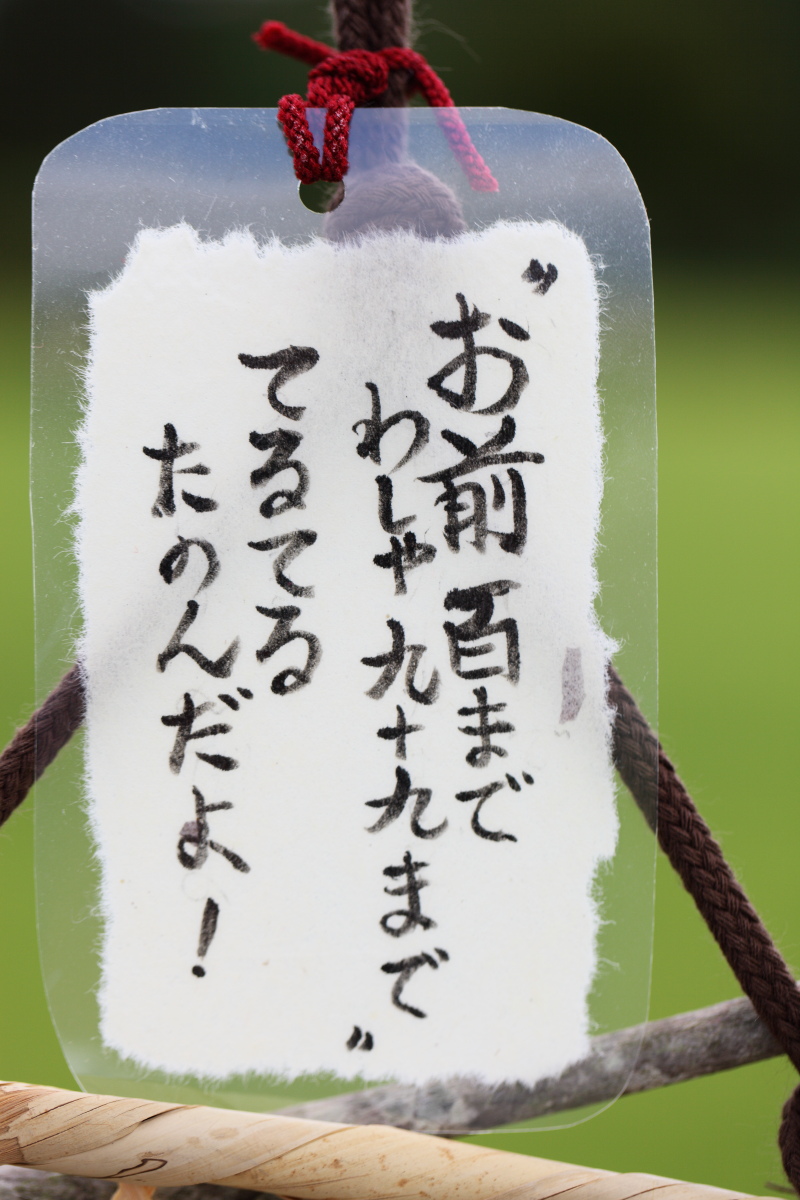 〃お前百まで
わしゃ九十九まで〃
てるてる
たのんだよ！